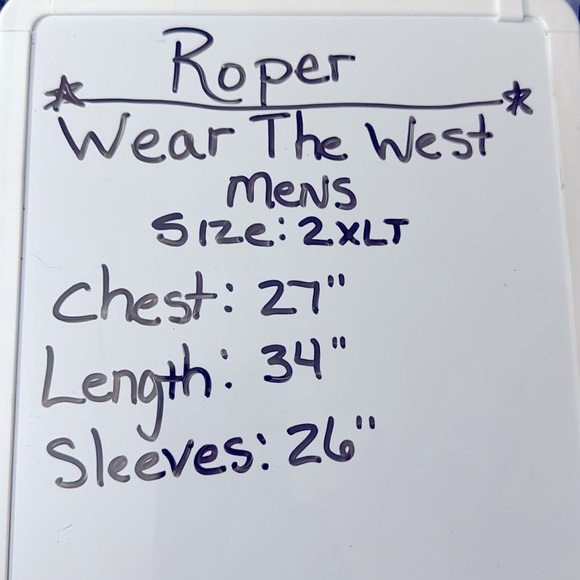 Roper
Wear The West
Mens
Size: 2XLT
Chest: 27"
Length: 34"
Sleeves: 26"